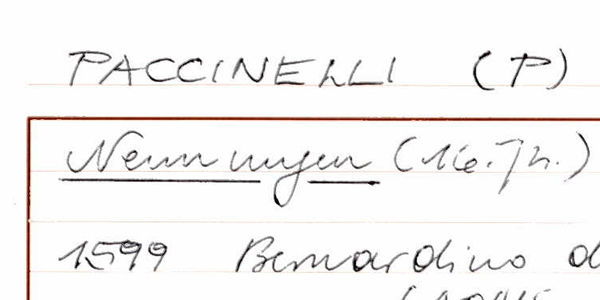 PACCINELLI (P)
Nennungen (16. Jh.)
1599 Bernardino d